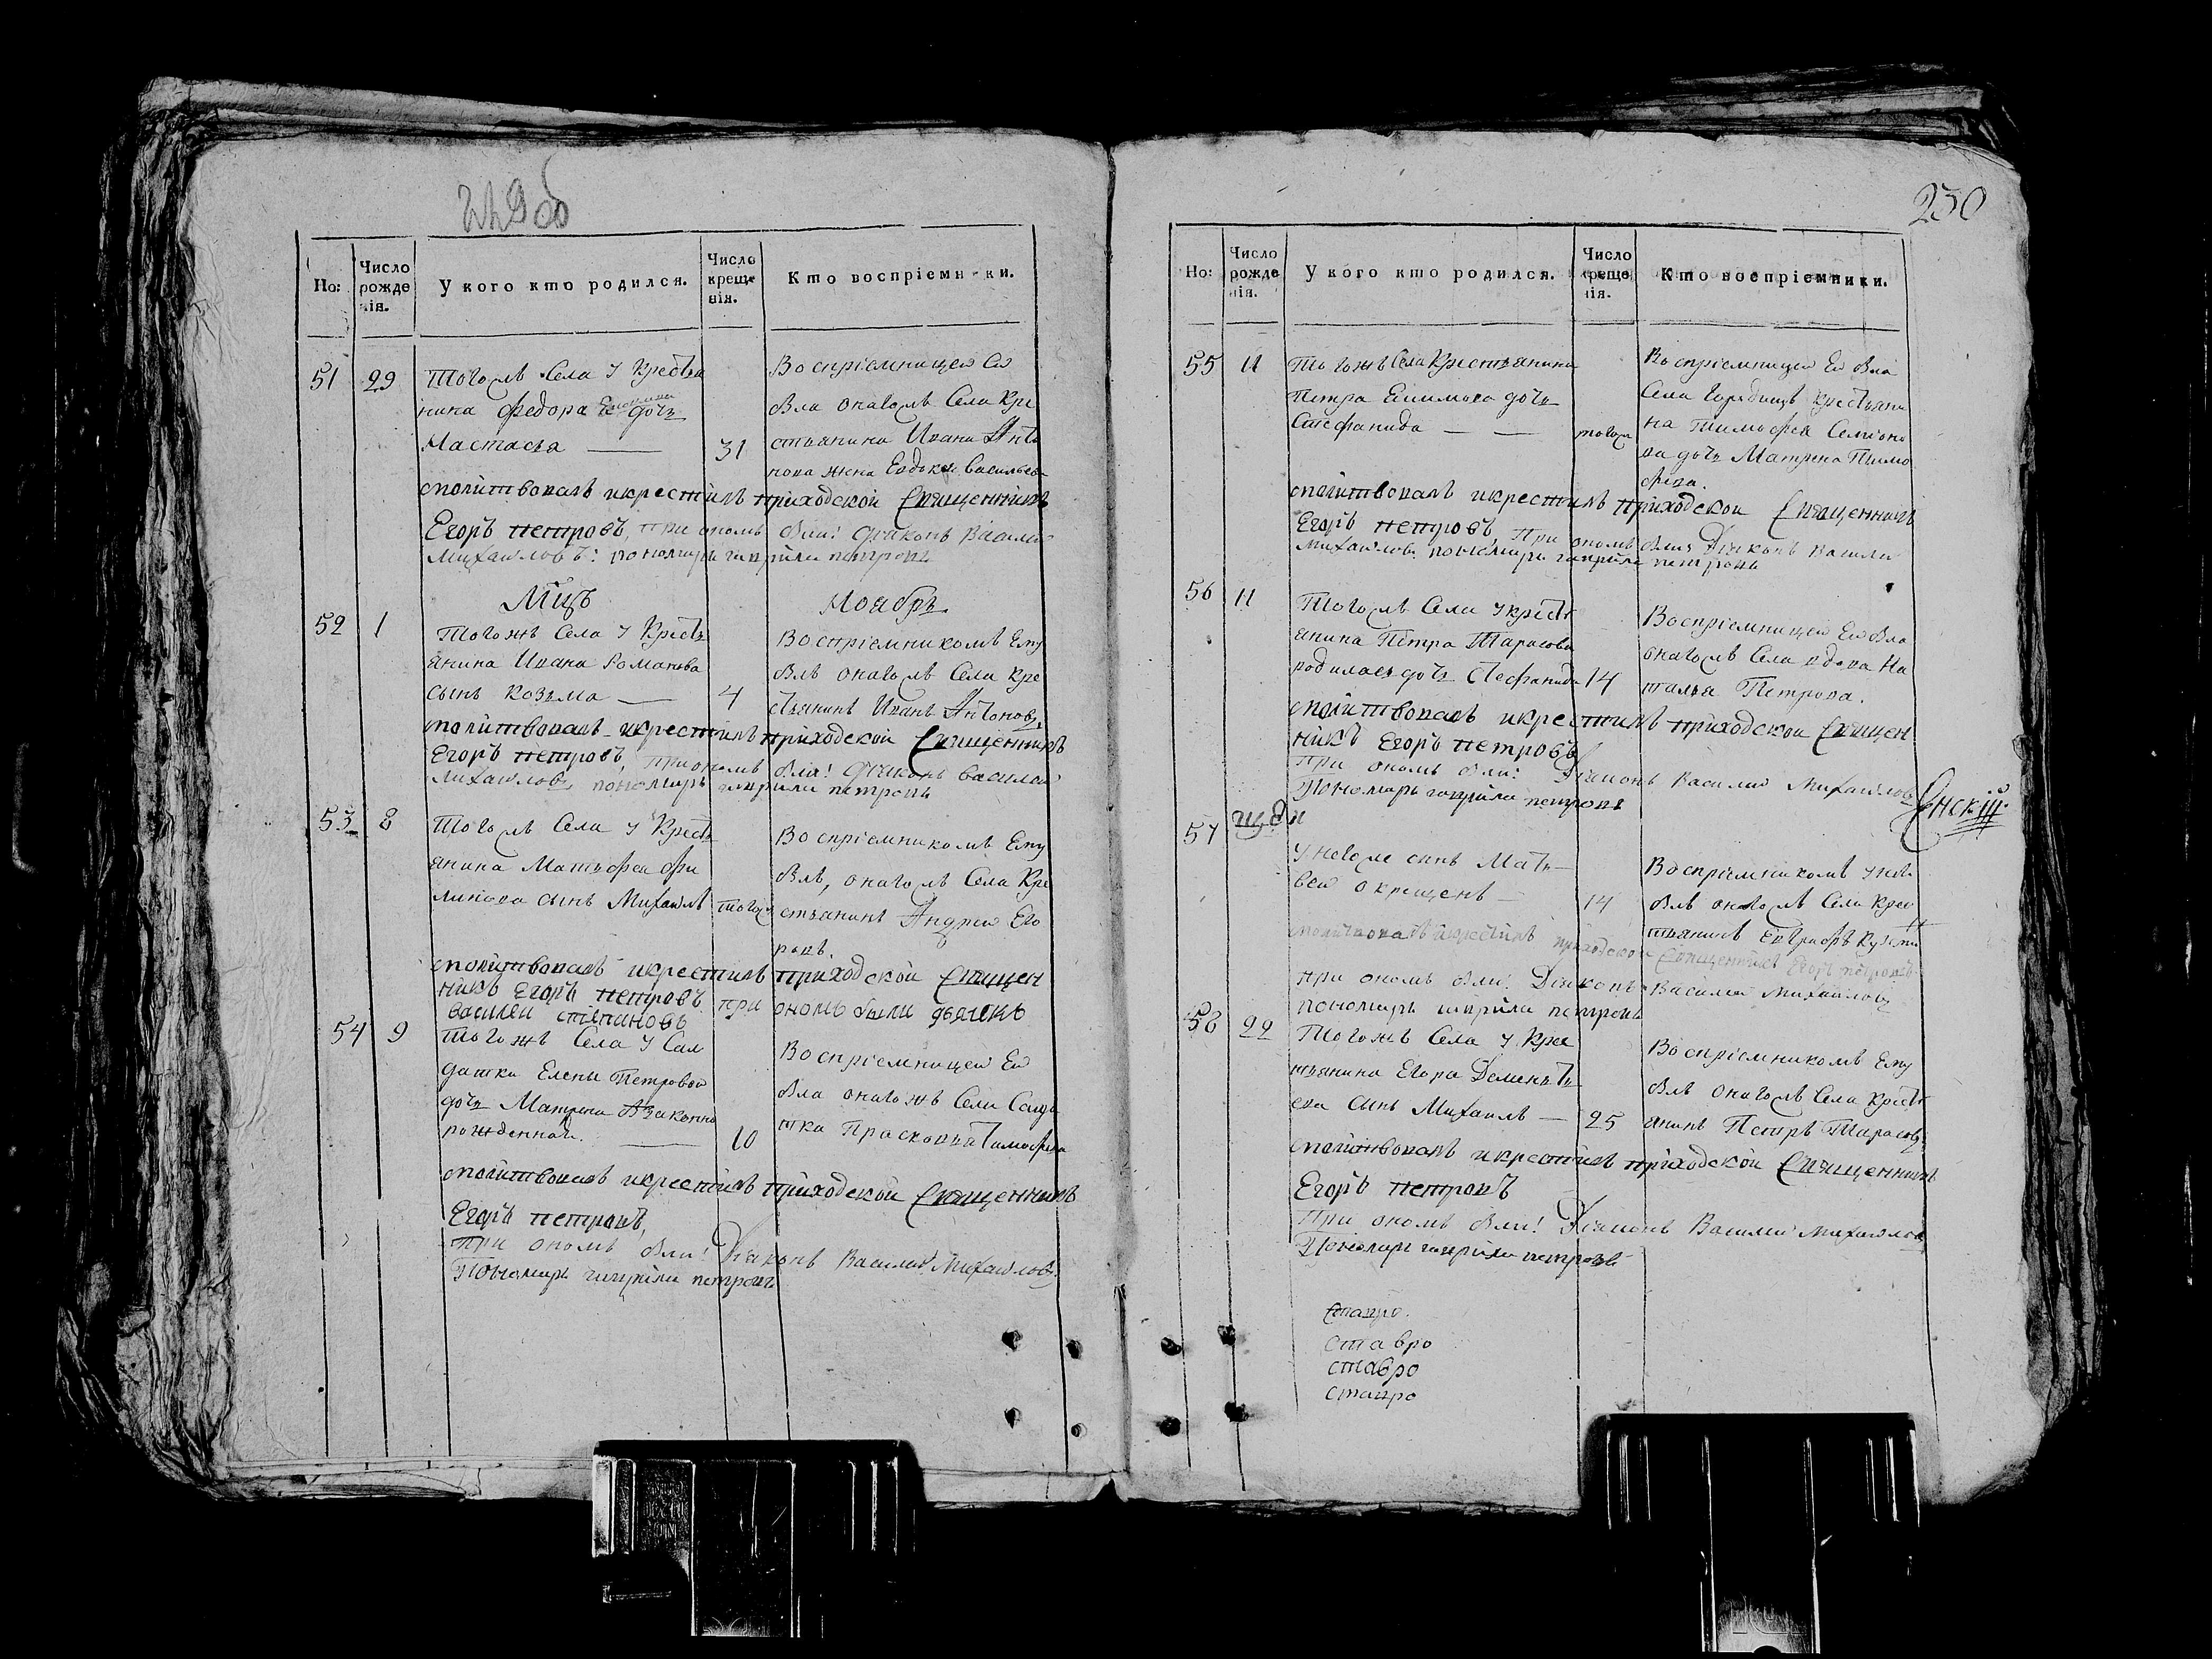 249 об
Но:
Число рожденія.
У кого кто родился.
Число крещенія.
Кто воспріемники.
51 29
Тогожъ Села у Крестья
нина Федора дочь
Настасья — 31
Воспріемницей Ей
Бла онагожъ Села Кре
стьянина Ивана Анто
нова жена Евдокия Васильева
молитвовалъ икрестилъ приходской Священникъ
Егоръ петровъ, при ономъ Были: диаконъ Василей
Михайловъ: пономарь гаврила петровъ
Мцъ Ноябрь
52 1
Тогожъ Села у Кресть
янина Ивана Романова
сынъ козьма — 4
Воспріемникомъ Ему
Блъ онагожъ Села Кре
стьянинъ Иванъ Антоновъ
молитвовалъ икрестилъ приходской Священникъ
Егоръ петровъ, при ономъ Были: диаконъ василей
Михайловъ пономарь гаврила петровъ
53 8
Тогожъ Села у Кресть
янина Матвфея Фи
липова сынъ Михаилъ тогож
Воспріемникомъ Ему
Блъ, онагожъ Села Кре
стьянинъ Андрей Его
ровъ.
молитвовалъ икрестилъ приходской Священ
никъ Егоръ петровъ при ономъ были дьячекъ
василей степановъ
54 9
Тогожъ Села у Сал
датки Елены Петровой
дочь Матрена
рожденная. — 10
Воспріемницей Ей
Бла онагожъ Села Салда
тка Прасковья Тимофеева
молитвовалъ икрестилъ приходской Священникъ
Егоръ петровъ,
При ономъ Были: Диаконъ Василей Михайловъ
Пономарь гаврила петровъ
230
Но:
Число рожденія.
У кого кто родился.
Число крещенія.
Кто воспріемники.
55 11
Тогожъ Села Крестьянина
Петра Ефимова дочь
Стефанида — — тогож
Воспріемницей Ей Бла
Села Городищъ Крестьяни
на Тимофея Семіоно
ва дочь Матрена Тимо
феева.
молитвовалъ икрестилъ приходской Священникъ
Егоръ петровъ, При ономъ Были Диаконъ Василий
Михайловъ пономарь гаврила петровъ
56 11
Тогожъ Села у крестъ
янина Петра Тарасова
родилась дочь Стефанида 14
Воспріемницей Ей Бла
онагожъ Села вдова На
талья Петрова.
молитвовалъ икрестилъ приходской Священ
никъ Егоръ петровъ
при ономъ Были: Диаконъ Василий Михайловъ
Пономарь гаврила петровъ
нскій
57
у негоже сынъ Мать
вей окрещенъ — 14
Воспріемникомъ у него
Блъ онагожъ Села Крес
тьянинъ
молитвовалъ икрестилъ приходской Священникъ Егоръ петровъ
При ономъ Были: Диаконъ Василий Михайловъ
пономарь гаврила петровъ
58 22
Тогожъ Села у Кре
стьянина Егора Деменьть
ева сынъ Михаилъ — 25
Воспріемникомъ Ему
Блъ онагожъ Села крестъ
янинъ Петръ Тарасовъ
молитвовалъ икрестилъ приходской Священникъ
Егоръ петровъ
При ономъ Были: Диаконъ Василий Михайловъ
Пономарь гаврила петровъ
ставро.
ставро
ставро
ставро